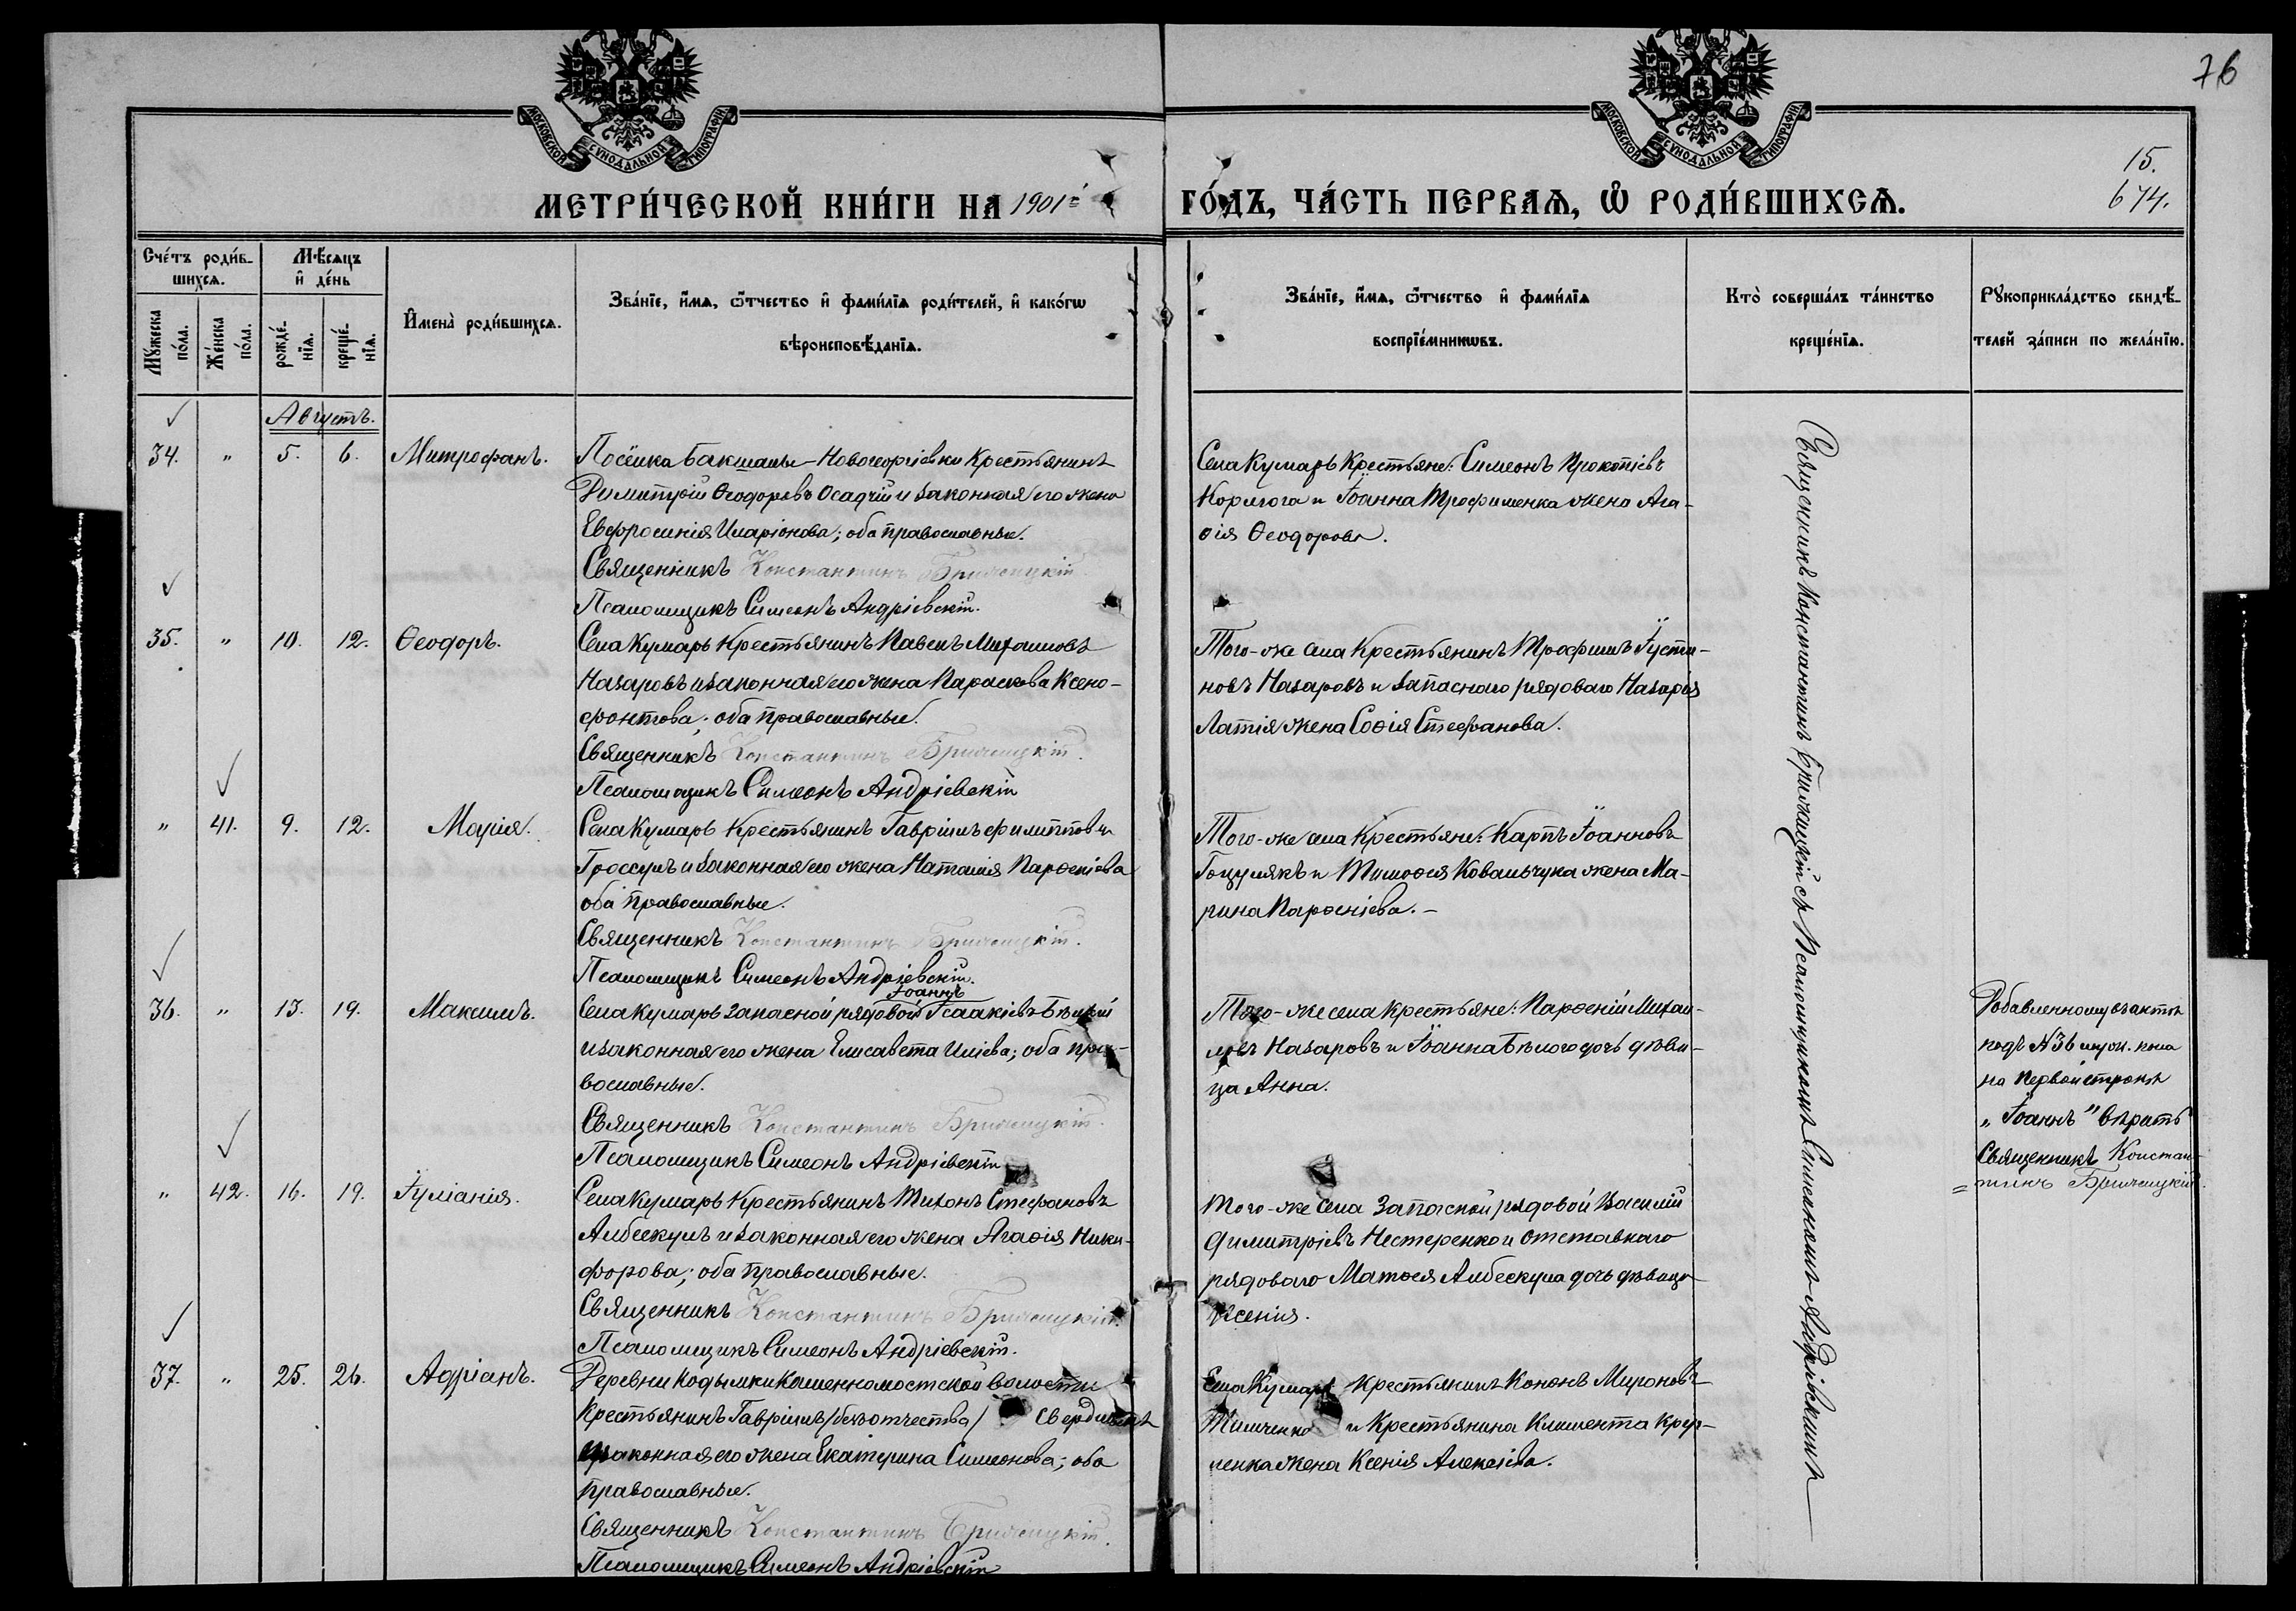 76
МОСКОВСКОЙ СУНОДАЛЬНОЙ ТИПОГРАФІИ
МОСКОВСКОЙ СУНОДАЛЬНОЙ ТИПОГРАФІИ
15.
674.
МЕТРИ́ЧЕСКОЙ КНИ́ГИ НА 1901й ГО́ДЪ, ЧА́СТЬ ПЕРВАѦ, Ѡ РОДИ́ВШИХСѦ.
Сче́тъ роди́в-
шихсѧ.
Мѣ́сѧцъ
и де́нь
Мꙋ́жеска
по́ла.
Же́нска
по́ла.
рожде́-
нїѧ.
креще́-
нїѧ.
И҆мена̀ роди́вшихсѧ.
Зва́нїе, и҆́мѧ, ѻ҆́тчество и҆ фами́лїѧ роди́телей, и҆ како́гѡ
вѣроисповѣ́данїѧ.
Зва́нїе, и҆́мѧ, ѻ҆́тчество и҆ фами́лїѧ
воспрїе́мникѡвъ.
Кто̀ соверша́лъ та́инство
креще́нїѧ.
Рꙋкоприкла́дство свидѣ́-
телей за́писи по жела́нїю.
Августъ.
34. " 5. 6. Митрофанъ.
Посёлка Бакшалы-Новогеоргіевки Крестьянинъ
Димитрій Ѳеодоровъ Осадчій и законная его жена
Евфросинія Иларіонова; оба православные.
Священникъ Константинъ Бричицкій
Псаломщикъ Симеонъ Андріевскій.
Села Кумаръ Крестьяне: Симеонъ Прокопіевъ
и Іоанна Трофименка жена Ага-
ѳія Ѳеодорова.
35. " 10. 12. Ѳеодоръ.
Села Кумаръ Крестьянинъ Павелъ Михаиловъ
Назаровъ и законная его жена Параскева Ксено-
фонтова; оба православные.
Священникъ Константинъ Бричицкій.
Псаломщикъ Симеонъ Андріевскій
Того-же села Крестьянинъ Трофимъ Іусти-
новъ Назаровъ и запаснаго рядоваго Назарія
Латія жена Софія Стефанова.
" 41. 9. 12. Марія.
Села Кумаръ Крестьянинъ Гавріилъ Филипповъ
Гроссулъ и законная его жена Наталія Парѳеніева
оба православные.
Священникъ Константинъ Бричицкій.
Псаломщикъ Симеонъ Андріевскій.
Того-же села Крестьяне: Карпъ Іоанновъ
Гоцулякъ и Тимоѳея Ковальчука жена Ма-
рина Парѳеніева.-
36. " 13. 19. Максимъ.
Іоаннъ
Села Кумаръ запасной рядовой Исаакіевъ Бѣлый
и законная его жена Елисавета Иліева; оба пра-
вославные.
Священникъ Константинъ Бричицкій.
Псаломщикъ Симеонъ Андріевскій
Того-же села крестьяне: Парѳеній Михаи-
ловъ Назаровъ и Іоанна Бѣлого дочь дѣви-
ца Анна.
Добавленному въ актѣ
подъ №36 муж. пола
на первой строкѣ
"Іоаннъ" вѣрить
Священникъ Констан-
=тинъ Бричицкій.
" 42. 16. 19. Іуліанія.
Села Кумаръ Крестьянинъ Тихонъ Стефановъ
Албескулъ и законная его жена Агаѳія Ники-
форова; оба православные.
Священникъ Константинъ Бричицкій.
Псаломщикъ Симеонъ Андріевскій.
Того-же села Запасной рядовой Василій
Димитріевъ Нестеренко и отставнаго
рядоваго Матѳея Албескула дочь дѣвица
Ксенія.
37. " 25. 26. Адріанъ.
Деревни Кодымки Каменномостской волости
Крестьянинъ Гавріилъ /безъ отчества/
законная его жена Екатерина Симеонова; оба
православные.
Священникъ Константинъ Бричицкій.
Псаломщикъ Симеонъ Андріевскій
Села Кумаръ Крестьянинъ Кононъ Мироновъ
Тимченко и Крестьянина Климента
жена Ксенія Алексіева.
Священникъ Константинъ Бричицкій съ Псаломщикомъ Симеономъ Андріевскимъ